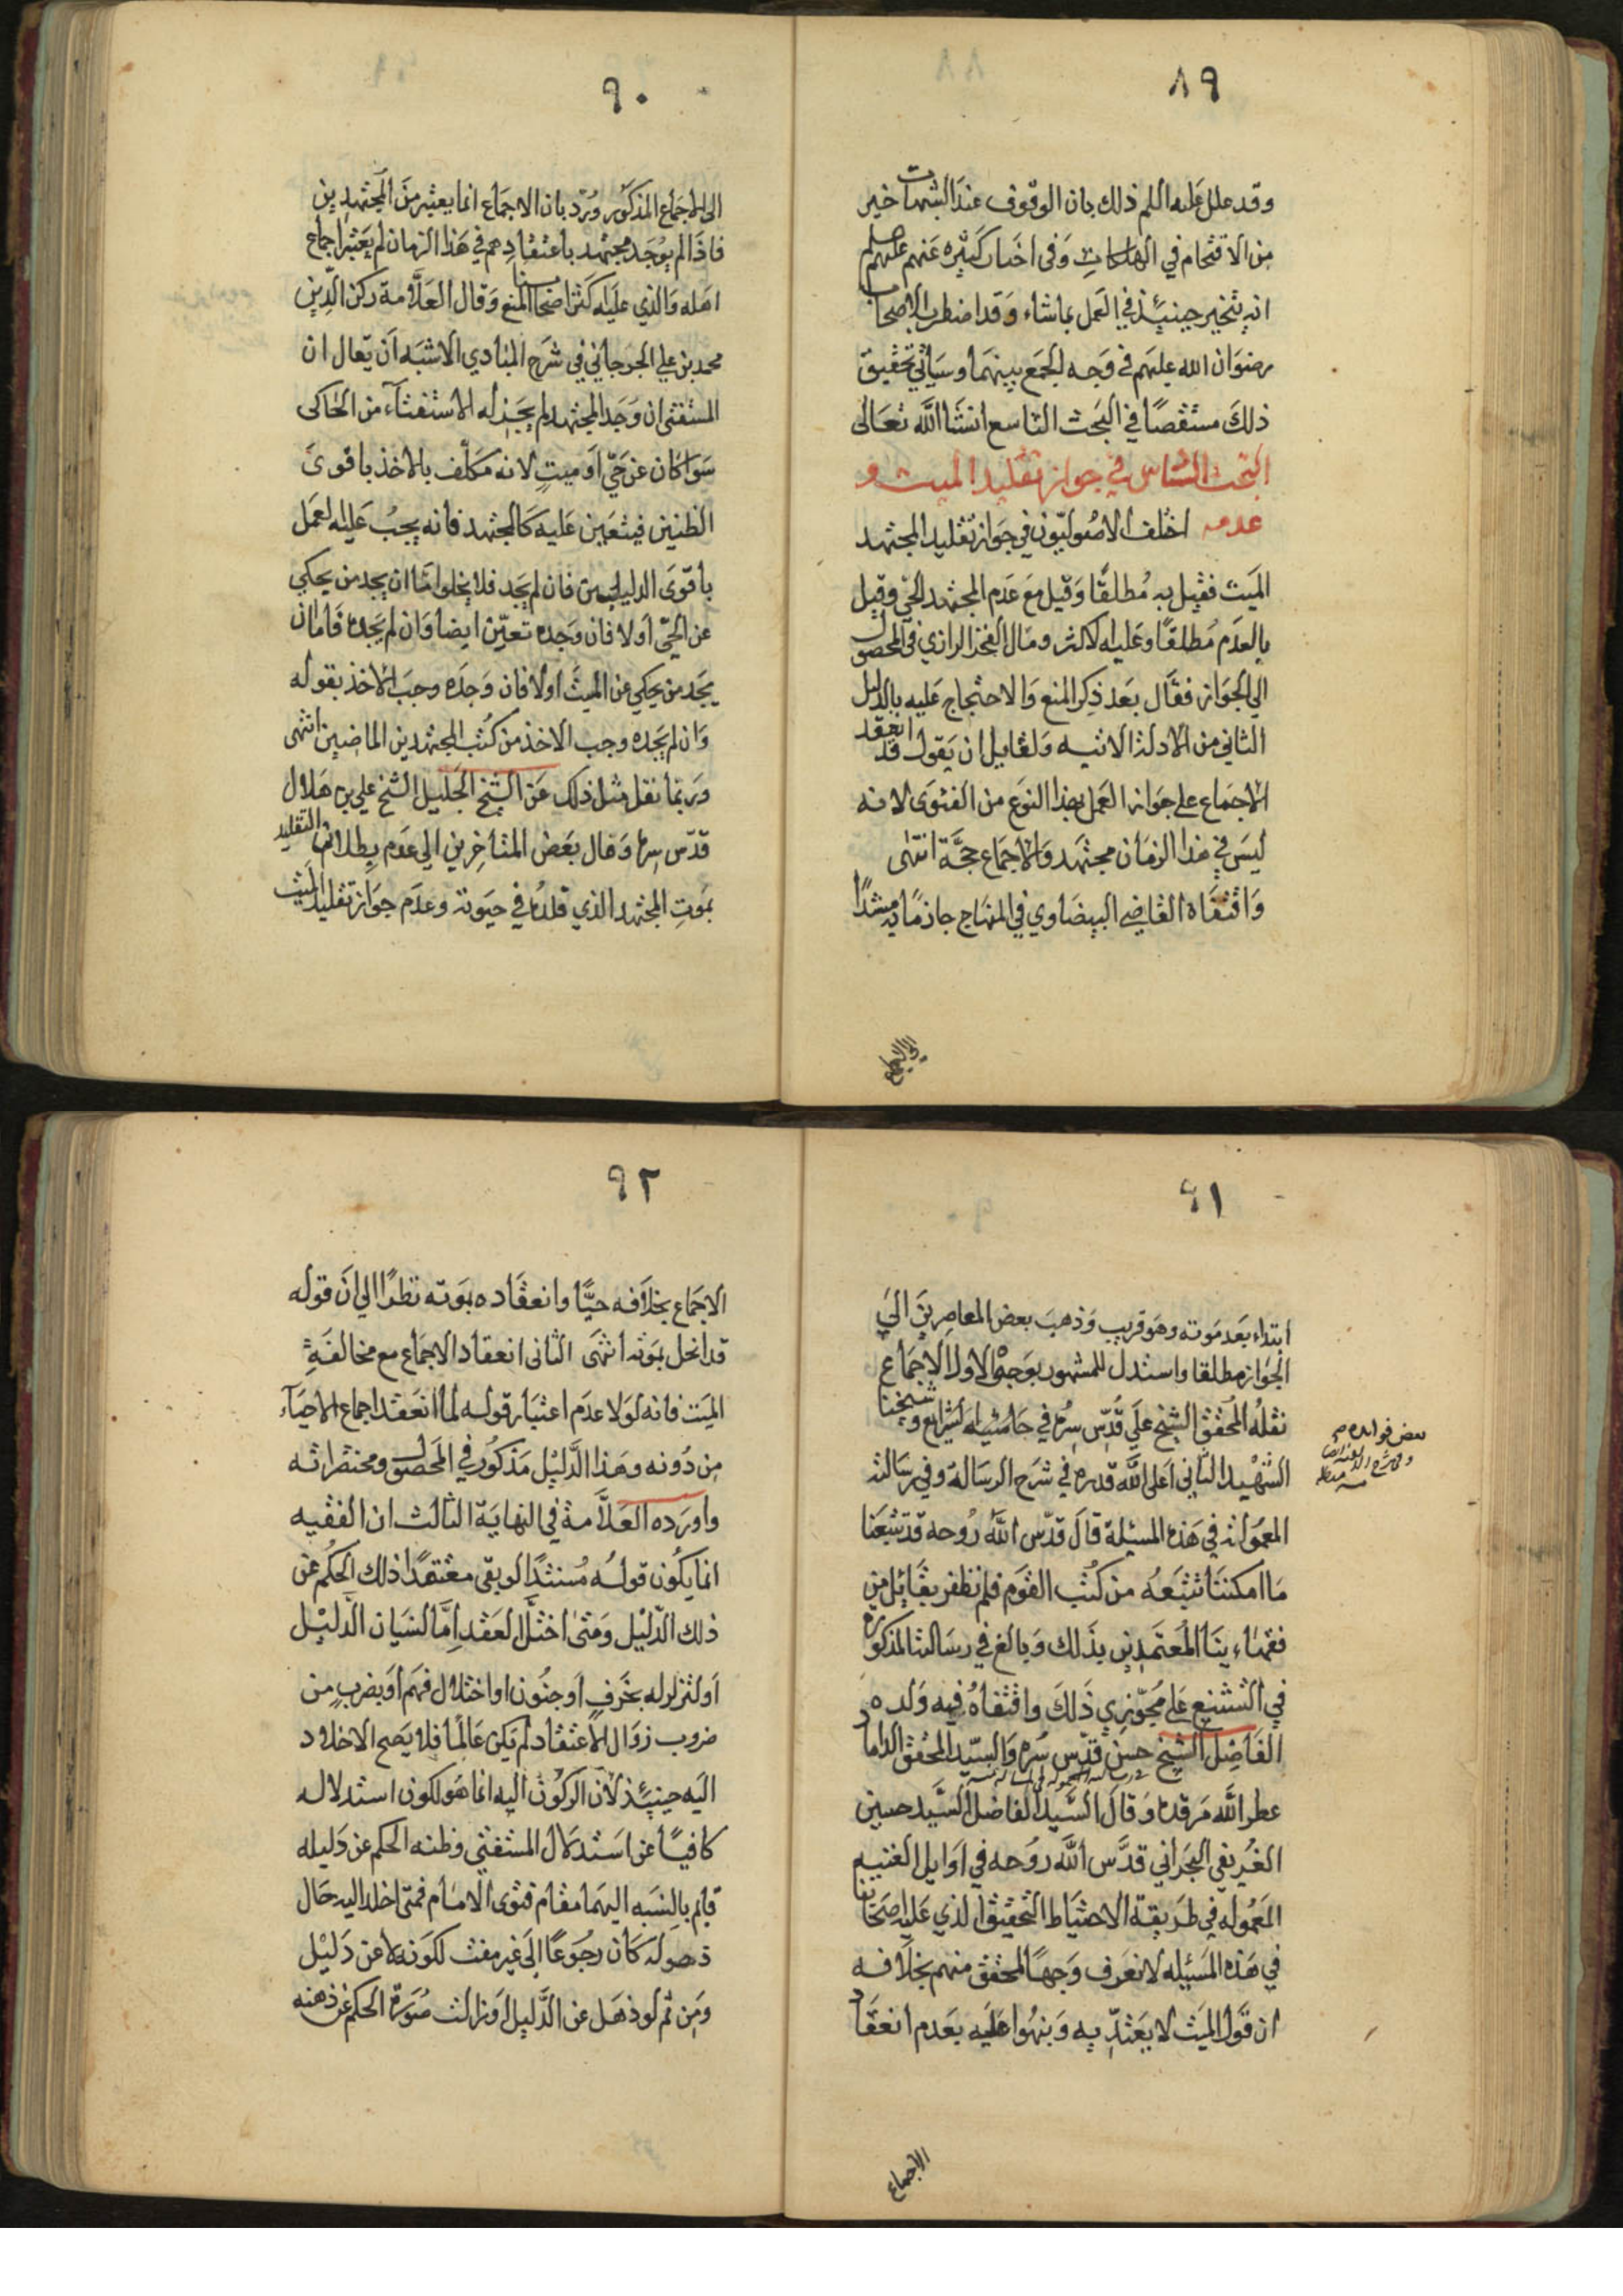 ٨٩
وقد علل عليه السلم ذلك بان الوقوف عند الشبهات خير
من الاقتحام في الهلكات وفى اخبار كثيره عنهم عليهم
انه يتخير حينئذ في العمل بماشاء وقد اضطرب الاصحاب
رضوان الله عليهم في وجه الجمع بينهما وسيأتي تحقيق
ذلك مستقصًا في البحث التاسع انشا الله تعالى
البحث السادس في جواز تقليد الميت و
عدمه اختلف الاصوليون في جواز تقليد المجتهد
الميت فقيل به مطلقًا وقيل مع عدم المجتهد الحي وقيل
بالعدم مطلقًا وعليه الاكثر ومال الفخر الرازي في المحصول
الي الجواز فقال بعد ذكر المنع والاحتجاج عليه بالدليل
الثاني من الادلة الاتيه ولقايل ان يقول قد انعقد
الاجماع على جواز العمل بهذا النوع من الفتوى لانه
ليس في هذا الزمان مجتهد والاجماع حجة انتهى
واقتفاه القاضي البيضاوي في المنهاج جازمًا به مسندًا
الى الاجماع
٩٠
الى الاجماع المذكور ورد بان الاجماع انما يعتبر من المجتهدين
فاذا لم يوجد مجتهد باعتقادهم في هذا الزمان لم يعتبر اجماع
اهله والذي عليه اكثر اصحابنا المنع وقال العلامة ركن الدين
محمد بن علي الجرجاني في شرح المبادي الاشبه ان يقال ان
المستفتى ان وجد المجتهد لم يجز له الاستفتآء من الحاكى
سوا كان عن حي او ميت لانه مكلف بالاخذ باقوى
الظنين فيتعين عليه كالمجتهد فانه يجب عليه العمل
باقوى الدليلين فان لم يجد فلا يخلوا اما ان يجد من يحكي
عن الحي اولا فان وجده تعين ايضا وان لم يجده فاما ان
يجد من يحكي عن الميت اولا فان وجده وجب الاخذ بقوله
وان لم يجده وجب الاخذ من كتب المجتهدين الماضين انتهى
وربما نقل مثل ذلك عن الشيخ الجليل الشيخ علي بن هلال
قدس سره ومال بعض المتأخرين الي عدم بطلان التقليد
بموت المجتهد الذي قلده في حيوته وعدم جواز تقليد الميت
٩١
ابتداء بعد موته وهو قريب وذهب بعض المعاصرين الى
الجواز مطلقا واستدل للمشهور بوجوه الاول الاجماع
نقله المحقق الشيخ علي قدس سره في حاشيه الشرايع وشيخنا
الشهيد الثاني اعلى الله قدره في شرح الرسالة وفي رسالته
المعمولة في هذه المسئلة قال قدس الله روحه قد تتبعنا
ما امكننا تتبعه من كتب القوم فلم نظفر بقائل من
فقهاءينا المعتمدين بذلك وبالغ في رسالته المذكوره
في التشنيع على مجوزي ذلك واقتفاه فيه ولده
الفاضل الشيخ حسن قدس سره والسيد المحقق الداماد
عطر الله مرقده وقال السيد الفاضل السيد حسين
الغريفي البحراني قدس الله روحه في اوايل الغنيه
المعموله في طريقة الاحتياط التحقيق الذي عليه اصحابنا
في هذه المسئله لا نعرف وجهًا لمحقق منهم بخلافه
ان قول الميت لا يعتد به ونبهوا عليه بعدم انعقاد
الاجماع
٩٢
الاجماع بخلافه حيًا وانعقاده بموته نظرًا الي ان قوله
قد انحل بموته انتهى الثانى انعقاد الاجماع مع مخالفة
الميت فانه لولا عدم اعتبار قوله لما انعقد اجماع الاحيآء
من دونه وهذا الدليل مذكور في المحصول ومختصراته
واورده العلامة في النهاية الثالث ان الفقيه
انما يكون قوله مستندًا لو بقى معتقدًا ذلك الحكم عن
ذلك الدليل ومتى اختل العقد اما لنسيان الدليل
او لتزلزله بخرف او جنون او اختلال فهم او بضرب من
ضروب زوال الاعتقاد لم يكن عالمًا فلا يصح الاخلاد
اليه حينئذ لان الركون اليه انما هو لكون استدلاله
كافيًا عن استدلال المستفتي وظنه الحكم عن دليله
قايم بالنسبه اليهما مقام فتوى الامام فمتى اخلد اليه حال
ذهوله كان رجوعًا الى غير مفت لكونه لا عن دليل
ومن ثم لو ذهل عن الدليل او زالت صورة الحكم عن ذهنه